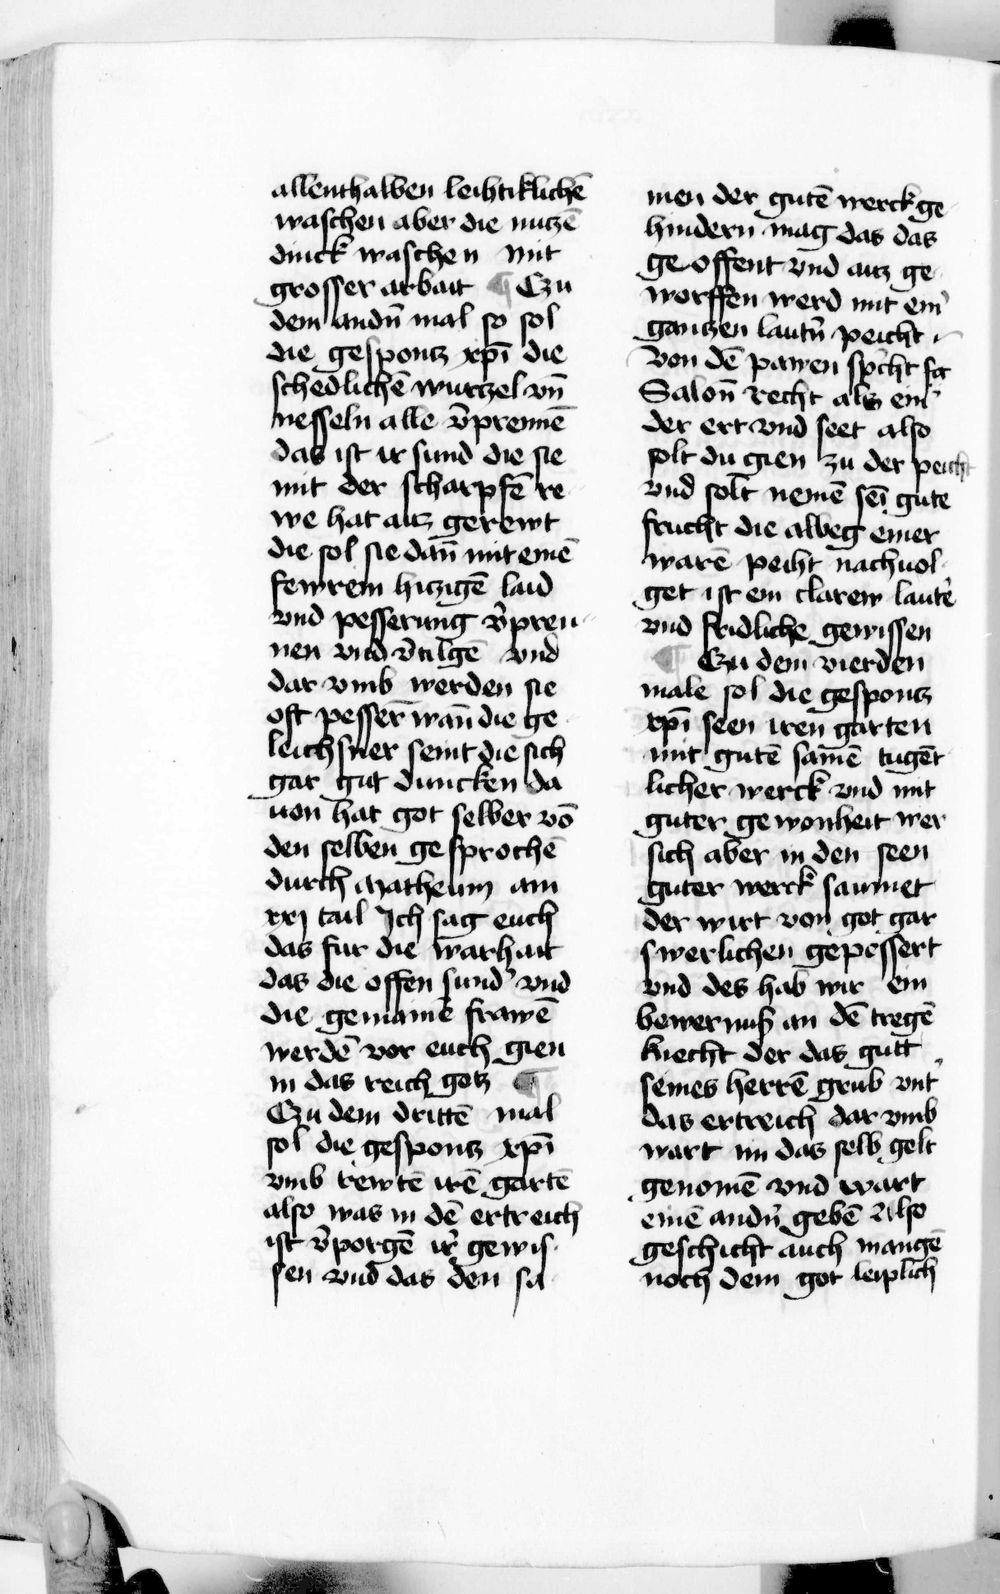 allenthalben leihtiklichē
waschen aber die nutzē
dinck waschen mit
grosser arbait ¶ Czu
dem andn̄ mal so sol
die gesponcz xp̄i die
schedlichē wurczel vn̄
nesseln alle v̄prennē
das ist ir sund die sie
mit der scharpfē re
we hat auz gerewt
die sol sie dan̄ mit einē
fewrein hiczigē laid
vnd pesserung v̄pren
nen vnd v̄tilgē vnd
dar vmb werden sie
oft pesser̄ wan̄ die ge
leichsner seint die sich
gar gut duncken da
uon hat got selber vō
den selben gesprochē
durch Matheum am
xxj tail Ich sag euch
das fur die warhait
das die offen sund' vnd
die gemainē frawē
werdē vor euch gien
in das reich gotz ¶
Czu dem drittē mal
sol die gesponcz xp̄i
vmb rewtē irē gartē
also was in dē ertreich
ist v̄porgē ir' gewis
sen vnd das den sa
men der gutē werck ge
hindern mag das das
geoffent vnd auz ge
worffen werd mit ein'
ganczen laut'n peicht
Von dē pawen sp'cht
Salon̄ Recht als ein'
der ert vnd seet also
solt du gien zu der peicht
vnd solt nemē sei' gute
frucht die alweg einer
warē peiht nachuol
get ist ein clarew laut'e
vnd fridliche gewissen
¶ Czu dem vierden
male sol die gesponcz
xp̄i seen iren garten
mit gutē samē tugēt
licher werck vnd mit
guter gewonheit wer
sich aber in den seen
guter werck saumet
der wirt von got gar
swerlichen gepessert
vnd des hab wir ein
bewernuß an dē tregē
knecht der das gutt
seines herrē grub vnt'
das ertreich dar vmb
wart im das selb gelt
genomē vnd wart
einē andn̄ gebē Also
geschicht auch mangē
noch dem got leiplich